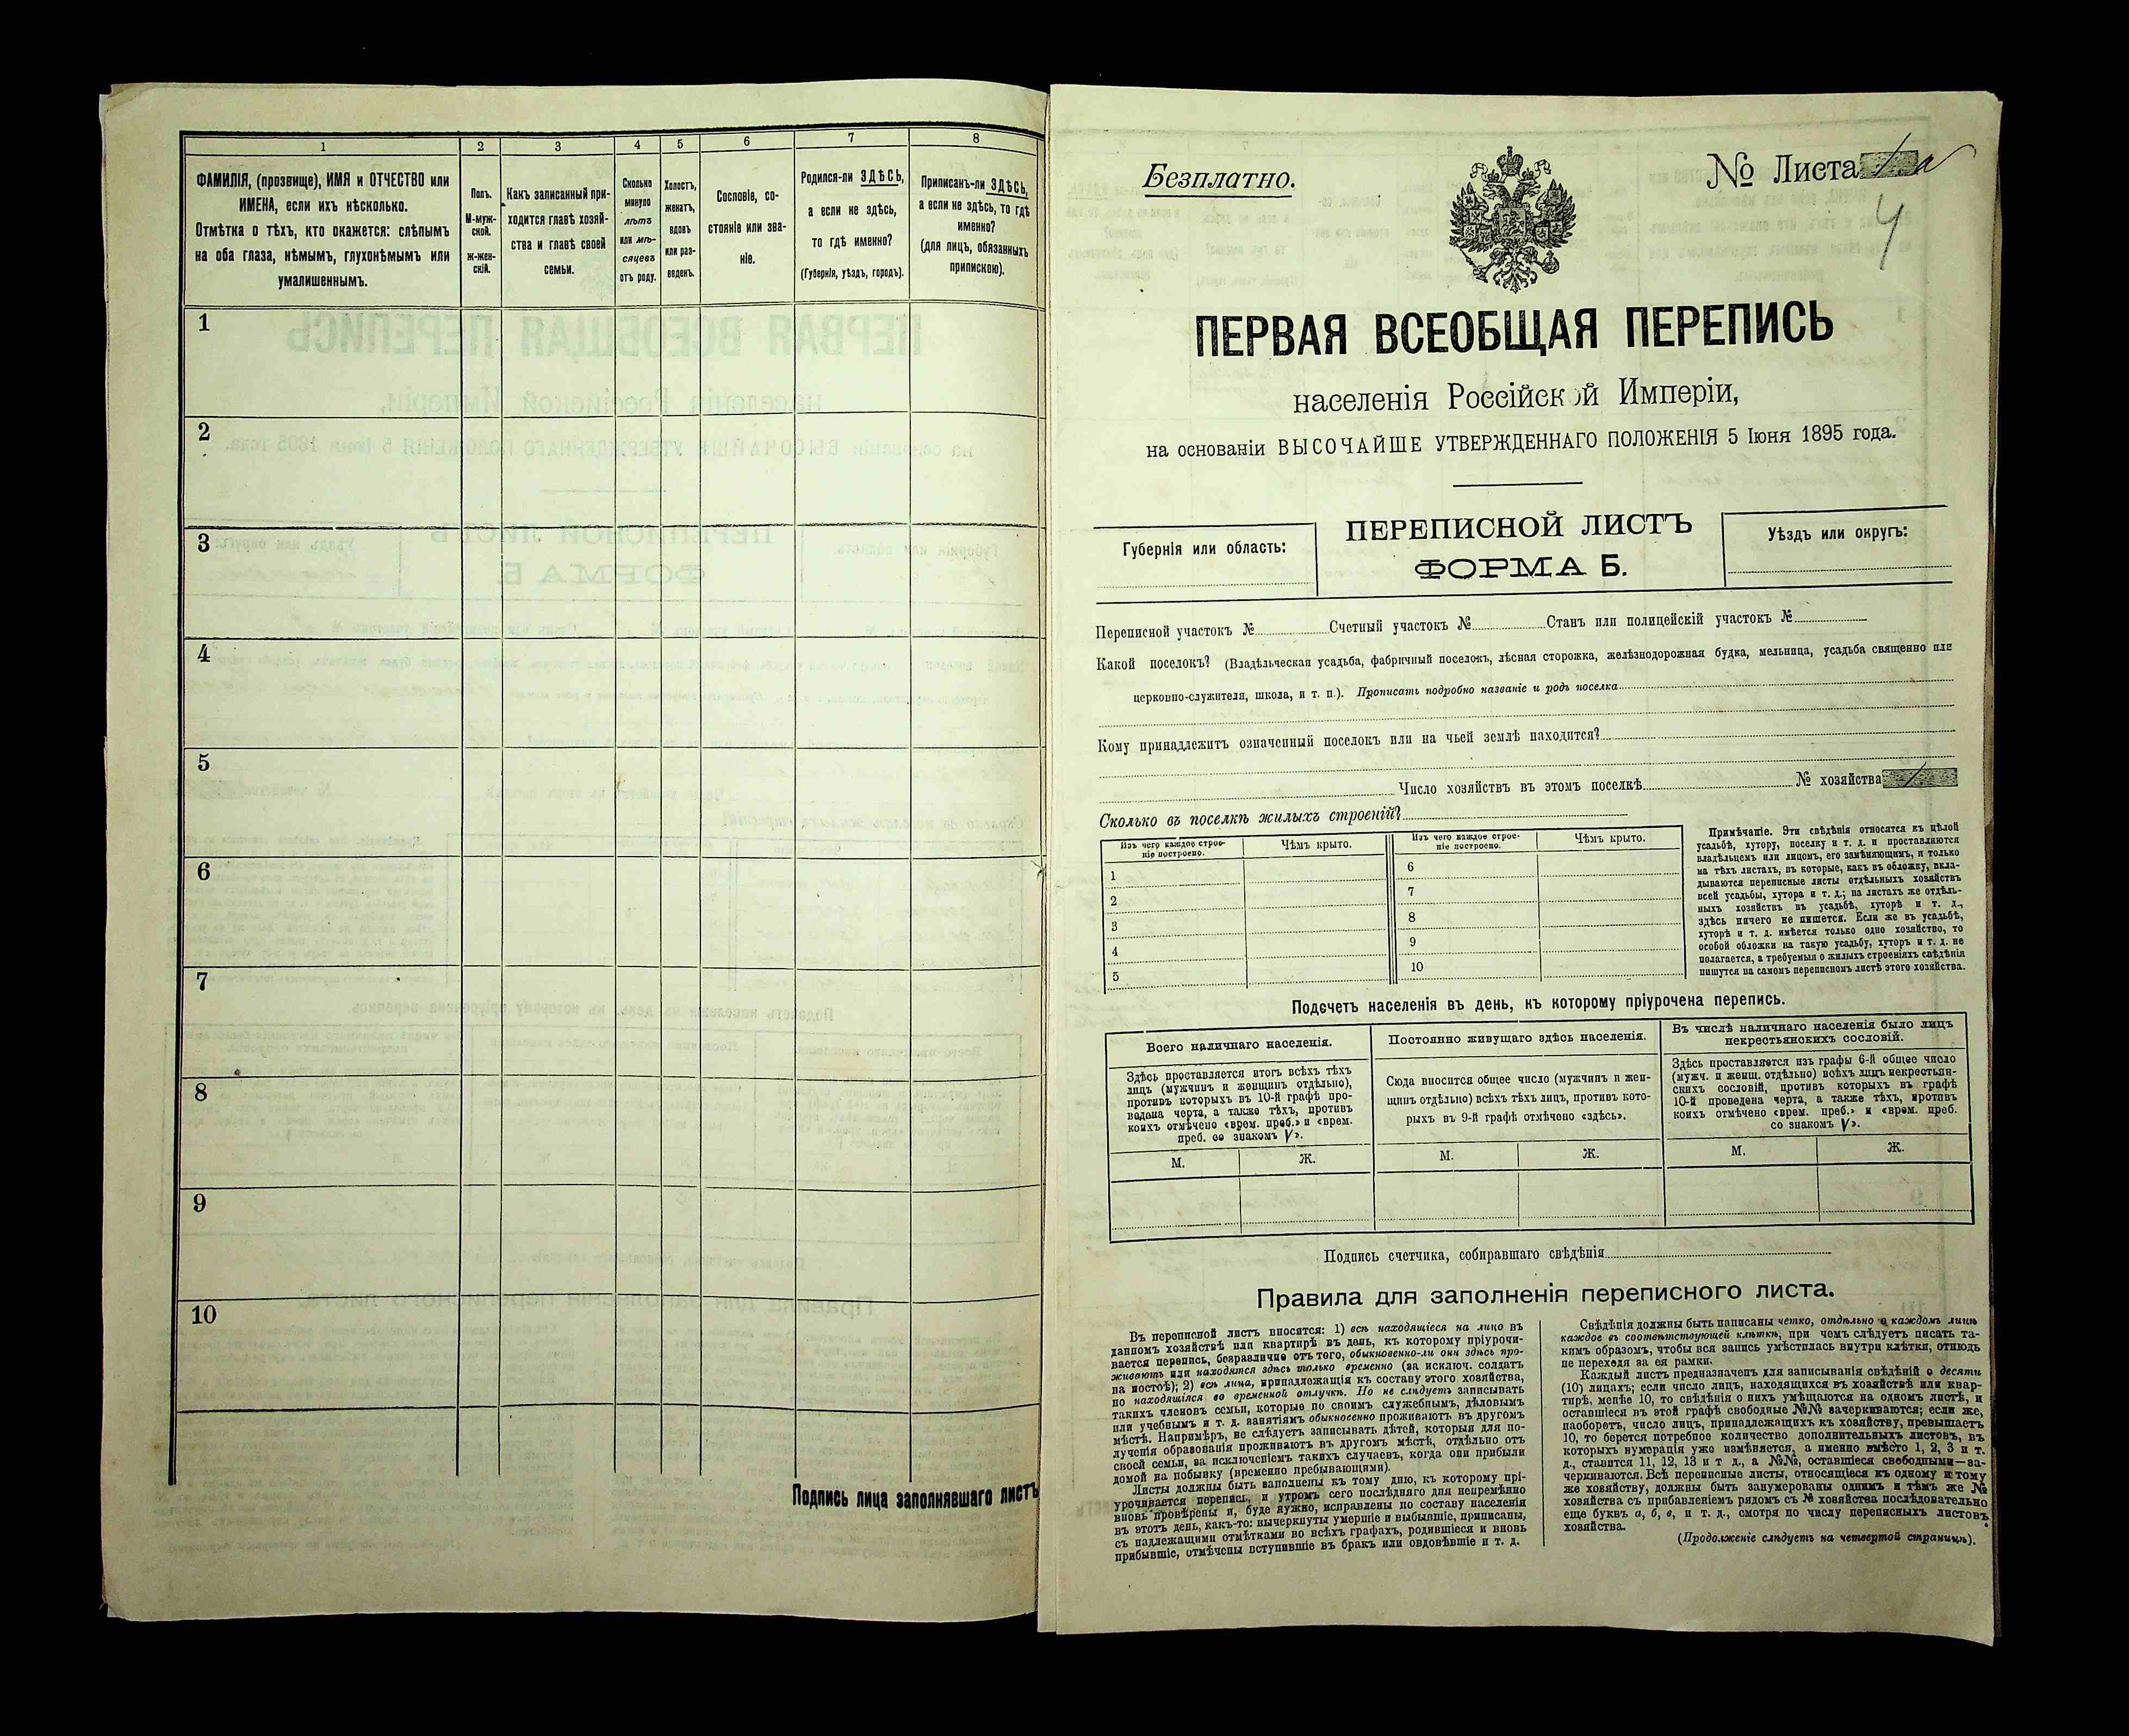 1 2 3 4 5 6 7 8
ФАМИЛІЯ, (прозвище), ИМЯ и ОТЧЕСТВО или
ИМЕНА, если ихъ нѣсколько.
Отмѣтка о тѣхъ, кто окажется: слѣпымъ
на оба глаза, нѣмымъ, глухонѣмымъ или
умалишеннымъ.
Полъ.
М-муж-
ской.
ж-жен-
скій.
Какъ записанный при-
ходится главѣ хозяй-
ства и главѣ своей
семьи.
Сколько
минуло
лѣтъ
или мѣ-
сяцевъ
отъ роду.
Холостъ,
женатъ,
вдовъ
или раз-
веденъ.
Сословіе, со-
стояніе или зва-
ніе.
Родился-ли ЗДѢСЬ,
а если не здѣсь,
то гдѣ именно?
(Губернія, уѣздъ, городъ).
Приписанъ-ли ЗДѢСЬ,
а если не здѣсь, то гдѣ
именно?
(для лицъ, обязанныхъ
припискою).
1
2
3
4
5
6
7
8
9
10
Подпись лица заполнявшаго листъ
Безплатно.
№ Листа 1 а
4
ПЕРВАЯ ВСЕОБЩАЯ ПЕРЕПИСЬ
населенія Россійской Имперіи,
на основаніи ВЫСОЧАЙШЕ УТВЕРЖДЕННАГО ПОЛОЖЕНІЯ 5 Іюня 1895 года.
Губернія или область:
ПЕРЕПИСНОЙ ЛИСТЪ
ФОРМА Б.
Уѣздъ или округъ:
Переписной участокъ № Счетный участокъ № Станъ или полицейскій участокъ №
Какой поселокъ? (Владѣльческая усадьба, фабричный поселокъ, лѣсная сторожка, желѣзнодорожная будка, мельница, усадьба священно или
церковно-служителя, школа, и т. п.). Прописать подробно названіе и родъ поселка
Кому принадлежитъ означенный поселокъ или на чьей землѣ находится?
Число хозяйствъ въ этомъ поселкѣ № хозяйства 1
Сколько въ поселкѣ жилыхъ строеній?
Изъ чего каждое строе-
ніе построено.
Чѣмъ крыто.
Изъ чего каждое строе-
ніе построено.
Чѣмъ крыто.
1
2
3
4
5
6
7
8
9
10
Примѣчаніе. Эти свѣдѣнія относятся къ цѣлой
усадьбѣ, хутору, поселку и т. д. и проставляются
владѣльцемъ или лицомъ, его замѣняющимъ, и только
на тѣхъ листахъ, въ которые, какъ въ обложку, вкла-
дываются переписные листы отдѣльныхъ хозяйствъ
всей усадьбы, хутора и т. д.; на листахъ же отдѣль-
ныхъ хозяйствъ въ усадьбѣ, хуторѣ и т. д.,
здѣсь ничего не пишется. Если же въ усадьбѣ,
хуторѣ и т. д. имѣется только одно хозяйство, то
особой обложки на такую усадьбу, хуторъ и т. д. не
полагается, а требуемыя о жилыхъ строеніяхъ свѣдѣнія
пишутся на самомъ переписномъ листѣ этого хозяйства.
Подсчетъ населенія въ день, къ которому пріурочена перепись.
Всего наличнаго населенія.
Здѣсь проставляется итогъ всѣхъ тѣхъ
лицъ (мужчинъ и женщинъ отдѣльно),
противъ которыхъ въ 10-й графѣ про-
ведена черта, а также тѣхъ, противъ
коихъ отмѣчено «врем. преб.» и «врем.
преб. со знакомъ V».
Постоянно живущаго здѣсь населенія.
Сюда вносится общее число (мужчинъ и жен-
щинъ отдѣльно) всѣхъ тѣхъ лицъ, противъ кото-
рыхъ въ 9-й графѣ отмѣчено «здѣсь».
Въ числѣ наличнаго населенія было лицъ
некрестьянскихъ сословій.
Здѣсь проставляется изъ графы 6-й общее число
(мужч. и женщ. отдѣльно) всѣхъ лицъ некрестьян-
скихъ сословій, противъ которыхъ въ графѣ
10-й проведена черта, а также тѣхъ, противъ
коихъ отмѣчено «врем. преб.» и «врем. преб.
со знакомъ V».
М. Ж. М. Ж. М. Ж.
Подпись счетчика, собиравшаго свѣдѣнія
Правила для заполненія переписного листа.
Въ переписной листъ вносятся: 1) всѣ находящіеся на лицо въ
данномъ хозяйствѣ или квартирѣ въ день, къ которому пріурочи-
вается перепись, безразлично отъ того, обыкновенно-ли они здѣсь про-
живаютъ или находятся здѣсь только временно (за исключ. солдатъ
на постоѣ); 2) всѣ лица, принадлежащія къ составу этого хозяйства,
но находящіяся во временной отлучкѣ. Но не слѣдуетъ записывать
такихъ членовъ семьи, которые по своимъ служебнымъ, дѣловымъ
или учебнымъ и т. д. занятіямъ обыкновенно проживаютъ въ другомъ
мѣстѣ. Напримѣръ, не слѣдуетъ записывать дѣтей, которыя для по-
лученія образованія проживаютъ въ другомъ мѣстѣ, отдѣльно отъ
своей семьи, за исключеніемъ такихъ случаевъ, когда они прибыли
домой на побывку (временно пребывающими).
Листы должны быть заполнены къ тому дню, къ которому прі-
урочивается перепись, и утромъ сего послѣдняго дня непремѣнно
вновь провѣрены и, буде нужно, исправлены по составу населенія
въ этотъ день, какъ-то: вычеркнуты умершіе и выбывшіе, приписаны,
съ надлежащими отмѣтками во всѣхъ графахъ, родившіеся и вновь
прибывшіе, отмѣчены вступившіе въ бракъ или овдовѣвшіе и т. д.
Свѣдѣнія должны быть написаны четко, отдѣльно о каждомъ лицѣ
каждое въ соотвѣтствующей клѣткѣ, при чемъ слѣдуетъ писать та-
кимъ образомъ, чтобы вся запись умѣстилась внутри клѣтки, отнюдь
не переходя за ея рамки.
Каждый листъ предназначенъ для записыванія свѣдѣній о десяти
(10) лицахъ; если число лицъ, находящихся въ хозяйствѣ или квар-
тирѣ, менѣе 10, то свѣдѣнія о нихъ умѣщаются на одномъ листѣ, и
оставшіеся въ этой графѣ свободные №№ зачеркиваются; если же,
наоборотъ, число лицъ, принадлежащихъ къ хозяйству, превышаетъ
10, то берется потребное количество дополнительныхъ листовъ, въ
которыхъ нумерація уже измѣняется, а именно вмѣсто 1, 2, 3 и т.
д., ставится 11, 12, 13 и т д., а №№, оставшіеся свободными—за-
черкиваются. Всѣ переписные листы, относящіеся къ одному и тому
же хозяйству, должны быть занумерованы однимъ и тѣмъ же №
хозяйства съ прибавленіемъ рядомъ съ № хозяйства послѣдовательно
еще буквъ а, б, в, и т. д., смотря по числу переписныхъ листовъ
хозяйства.
(Продолженіе слѣдуетъ на четвертой страницѣ).